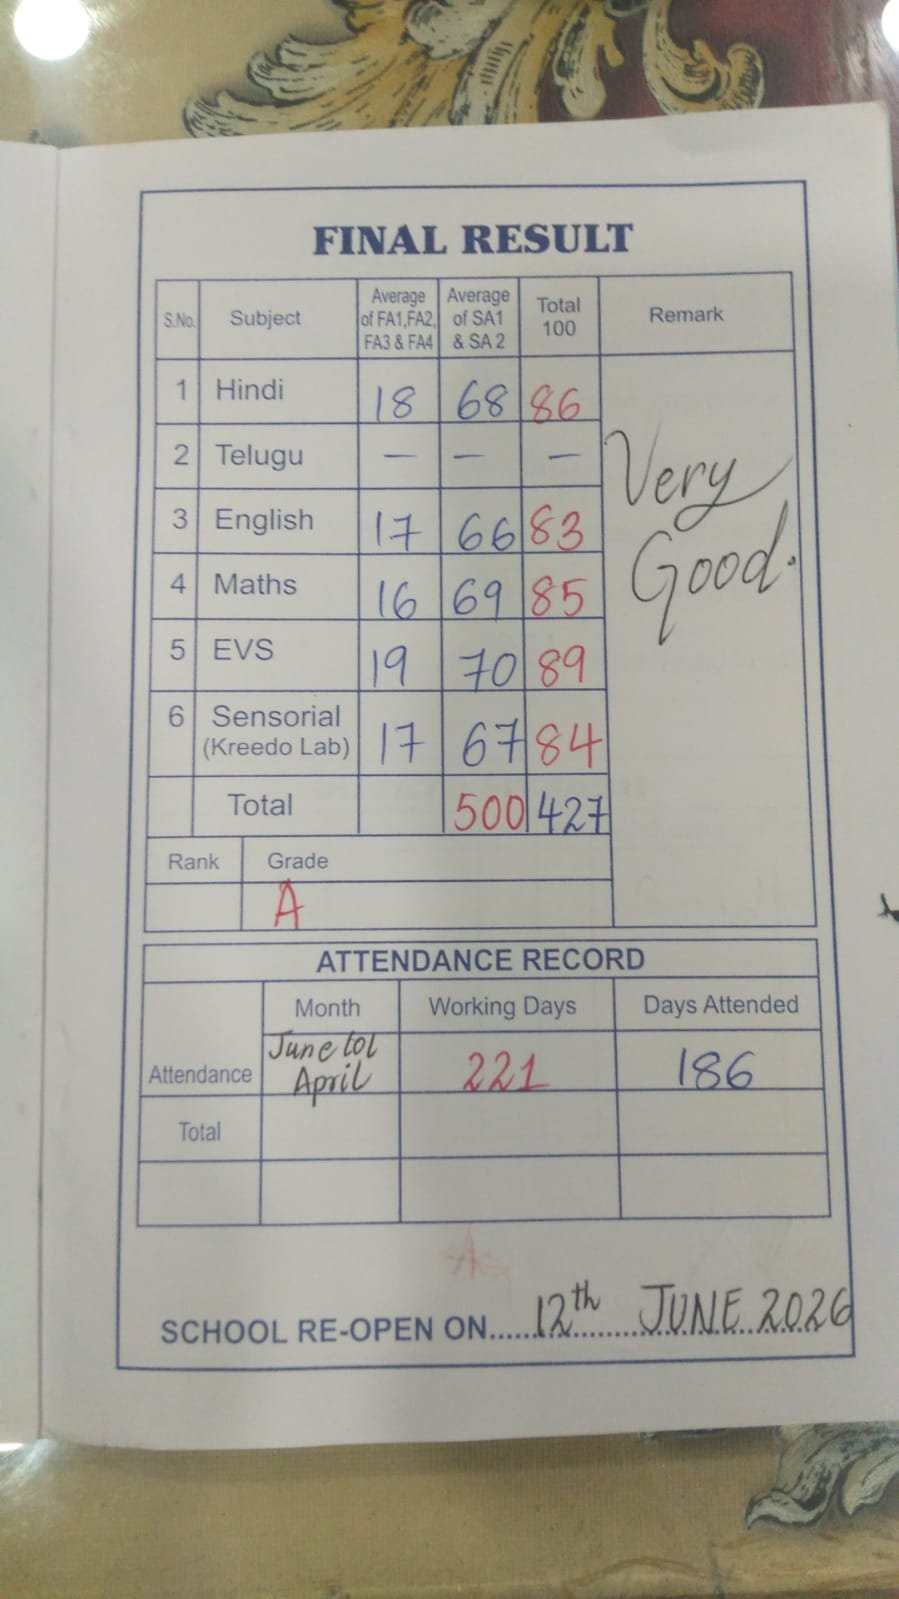 FINAL RESULT
S.No. Subject Average of FA1,FA2, FA3 & FA4 Average of SA1 & SA 2 Total 100 Remark
1 Hindi 18 68 86
2 Telugu — — —
3 English 17 66 83
4 Maths 16 69 85
5 EVS 19 70 89
6 Sensorial (Kreedo Lab) 17 67 84
Very
Good.
Total 500 427
Rank Grade
A
ATTENDANCE RECORD
Month Working Days Days Attended
Attendance June to April 221 186
Total
SCHOOL RE-OPEN ON......12th JUNE 2026